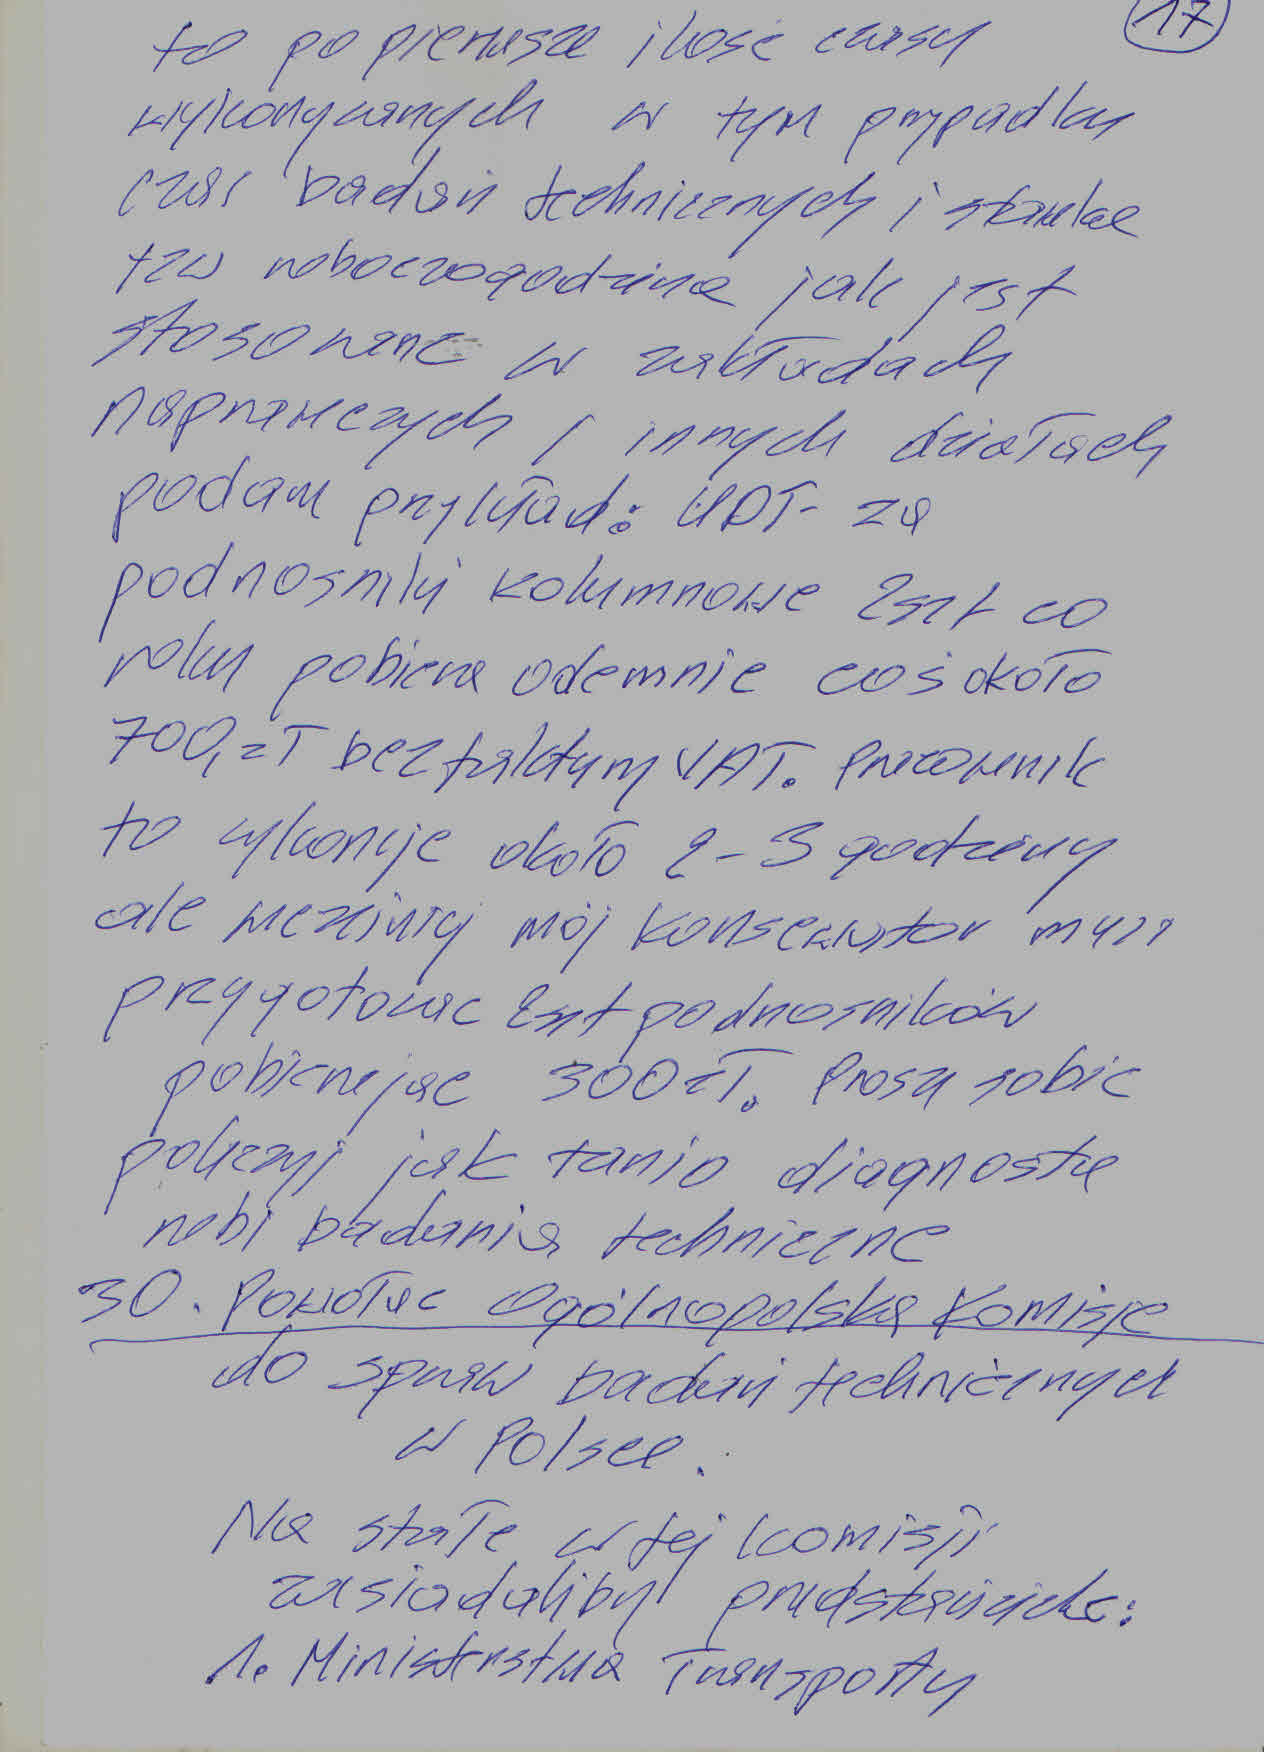 17
to po pierwsze ilość czasu
wykonywanych w tym przypadku
czas badań technicznych i stawkę
tzw roboczogodzinę jak jest
stosowane w zakładach
naprawczych i innych działach
podam przykład: UDT- za
podnosniki kolumnowe 2szt co
roku pobiera odemnie coś około
700,zł bez faktury VAT. Pracownik
to wykonuje około 2-3 godziny
ale wcześniej mój konserwator musi
przygotować 2szt podnosników
pobierając 300zł. Proszę sobie
policzyć jak tanio diagnosta
robi badania techniczne
30. Powołać Ogólnopolską Komisję
do spraw badań technicznych
w Polsce.
Na stałe w tej komisji
zasiadaliby przedstawiciele:
1. Ministerstwa Transportu